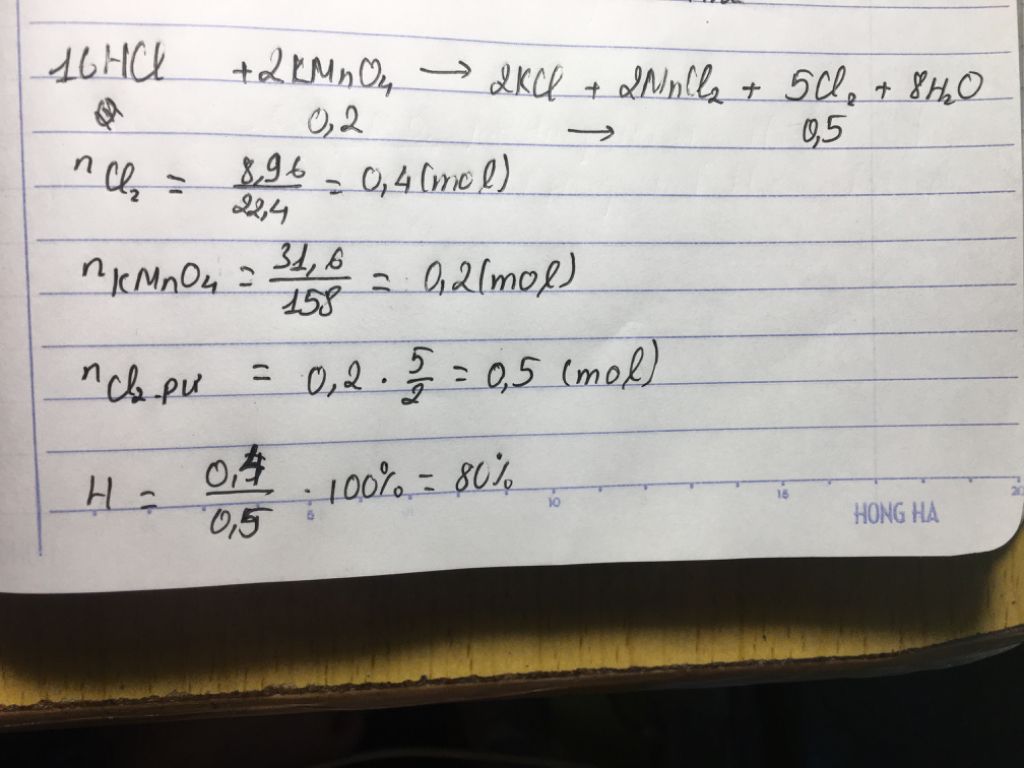 16HCl + 2KMnO4 → 2KCl + 2MnCl2 + 5Cl2 + 8H2O
0,2 → 0,5
nCl2 = 8,96/22,4 = 0,4 (mol)
nKMnO4 = 31,6/158 = 0,2 (mol)
nCl2 pư = 0,2 . 5/2 = 0,5 (mol)
H = 0,4/0,5 . 100% = 80%
5 10 15 20
HONG HA